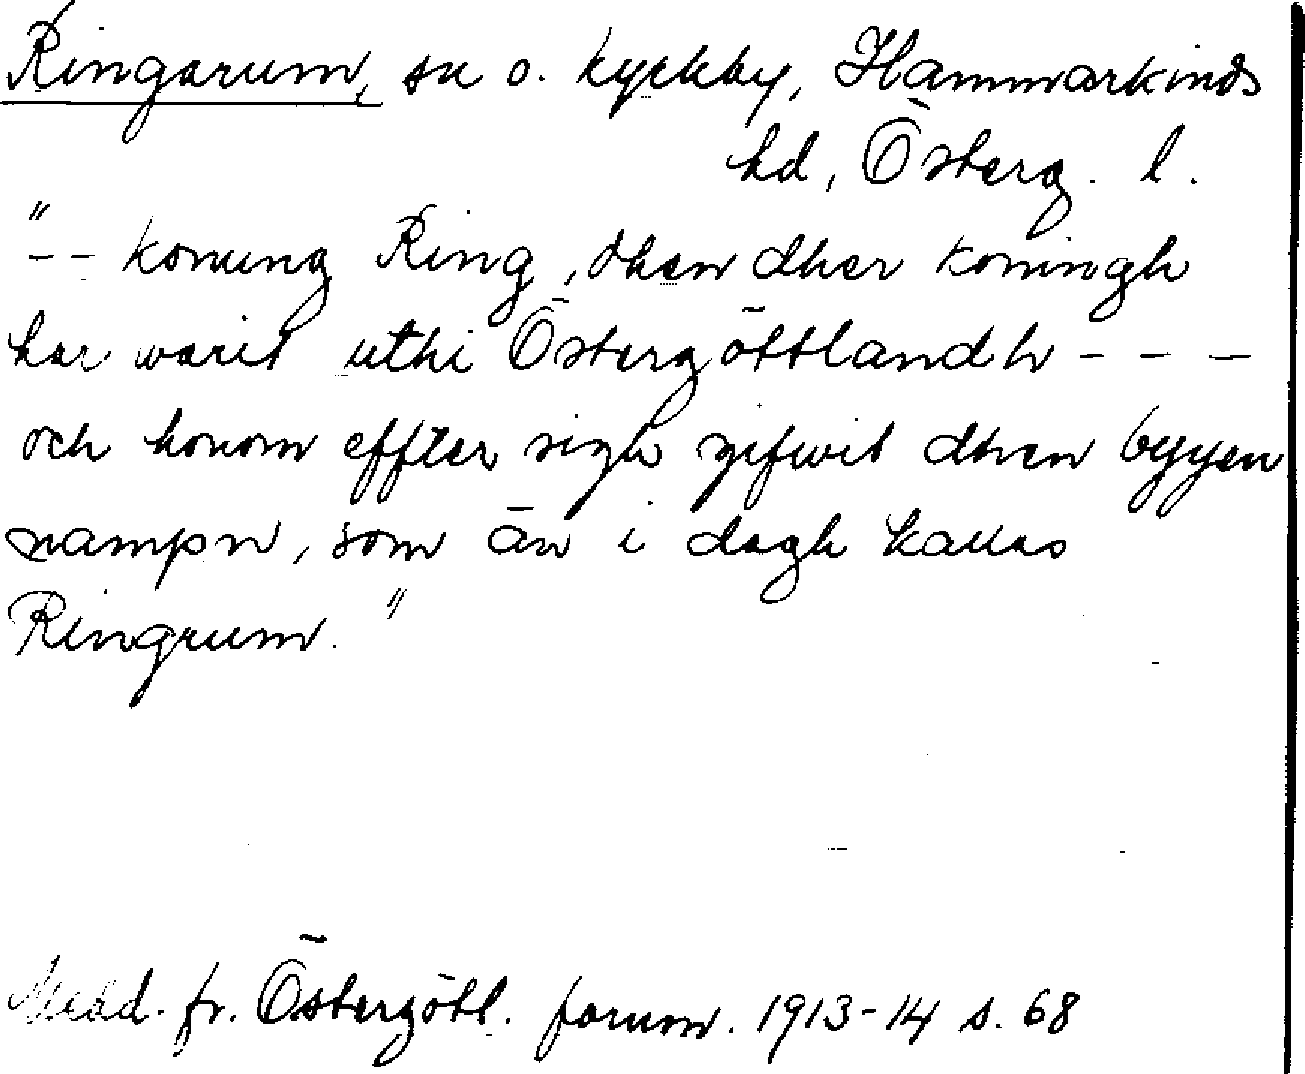 Ringarum, sn o. kyrkby, Hammarkinds
hd, Österg. l.
"-- konung Ring, dhen dher koningh
har warit uthi Östergöttlandh - - -
och honom effter sigh gifwit dhen byyen
nampn, som än i dagh kallas
Ringrum."
Medd. fr. Östergötl. fornm. 1913-14 s. 68